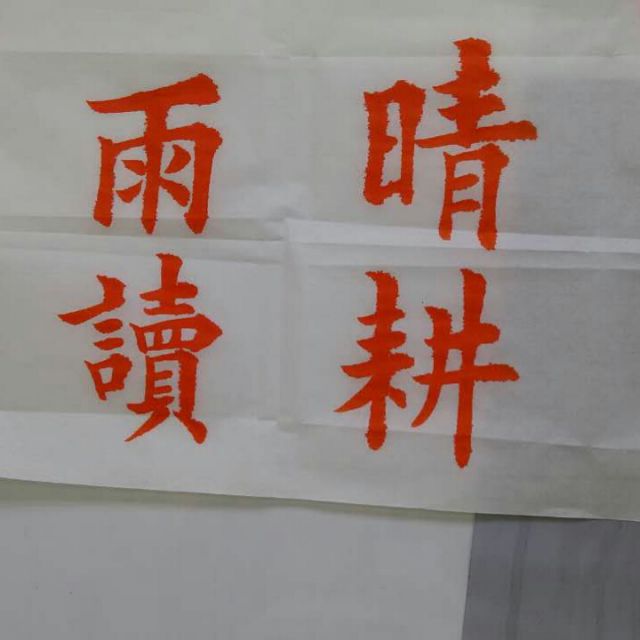 晴耕
雨讀